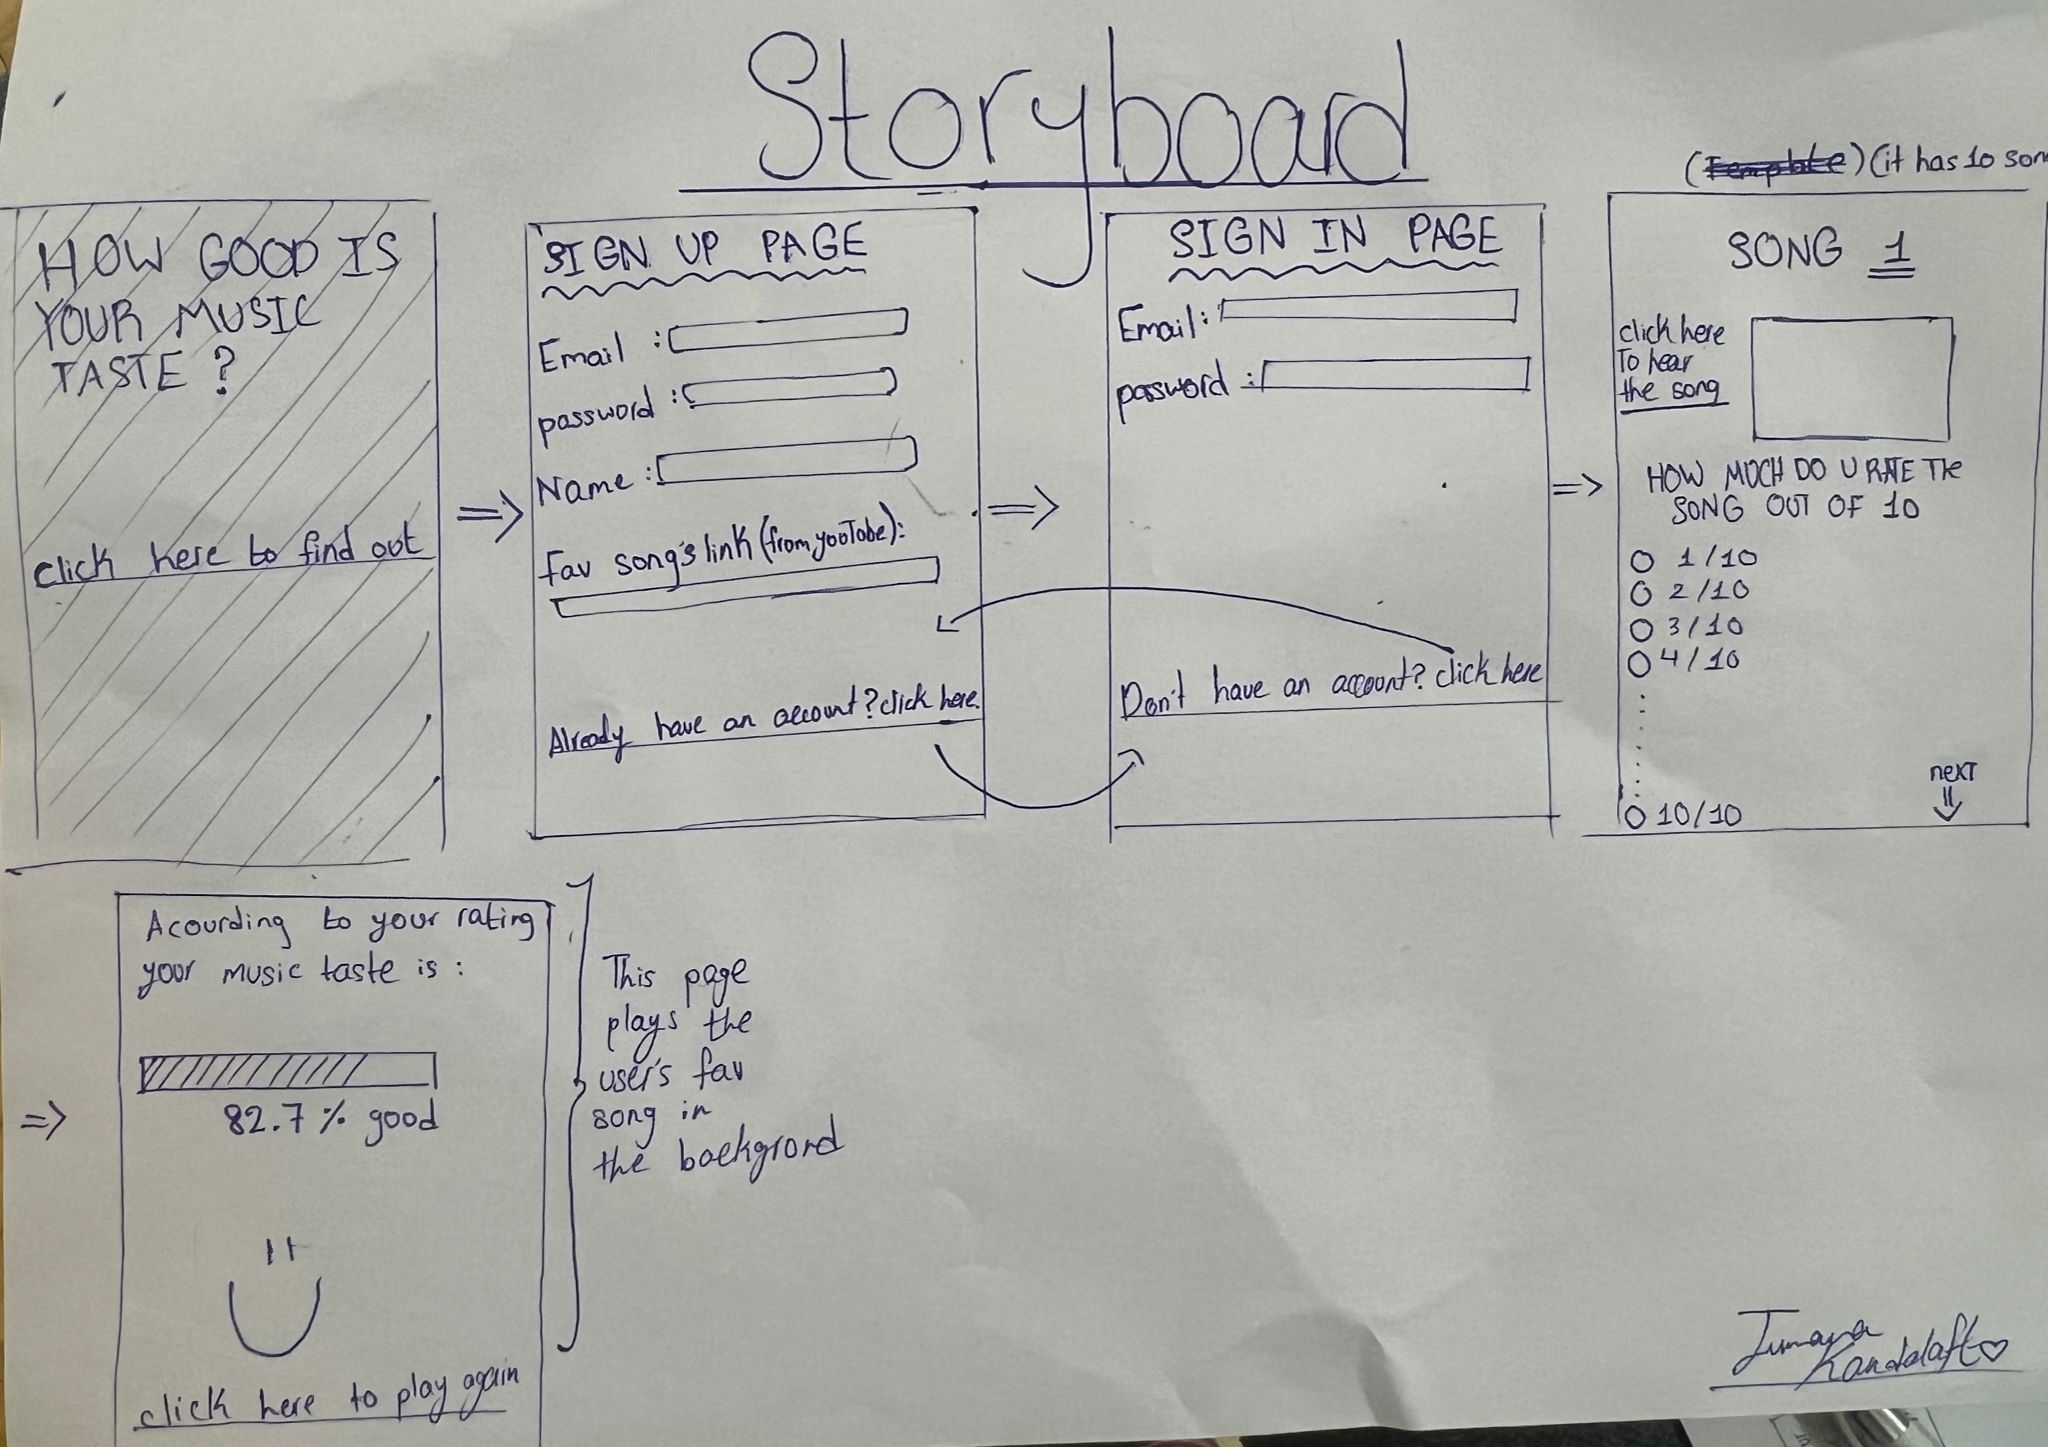 Storyboard
(Template) (it has 10 son
HOW GOOD IS
YOUR MUSIC
TASTE ?
click here to find out
SIGN UP PAGE
Email :
password :
Name :
Fav song's link (from yooTobe):
Already have an account? click here.
SIGN IN PAGE
Email :
password :
Don't have an account? click here
SONG 1
click here
To hear
the song
HOW MUCH DO U RATE THe
SONG OUT OF 10
1/10
2/10
3/10
4/10
10/10
next
Acourding to your rating
your music taste is :
82.7 % good
click here to play again
This page
plays the
user's fav
song in
the backgrond
Jumana
Kandalaft